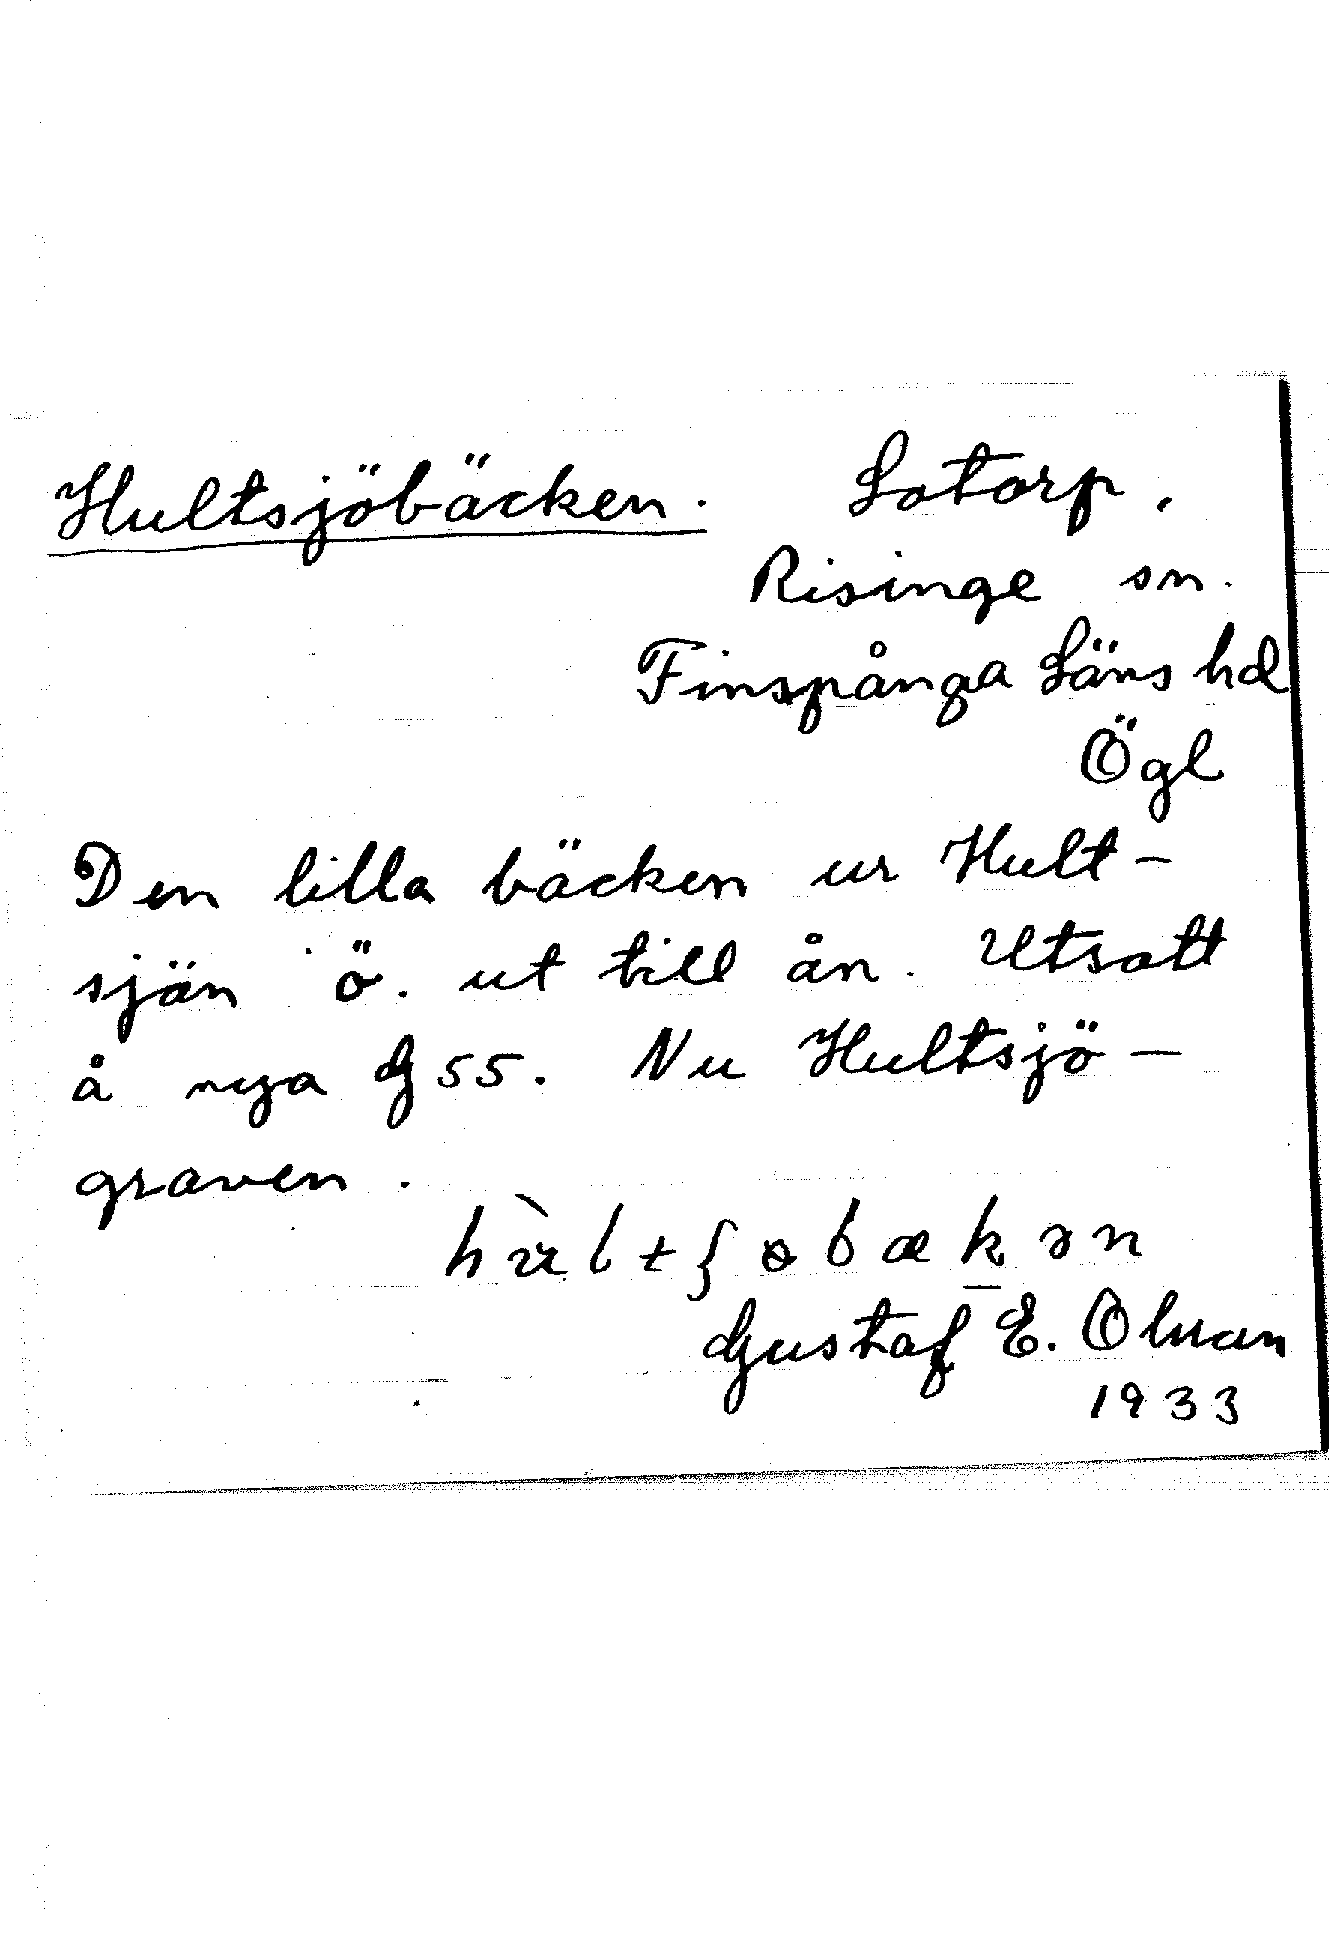 Hultsjöbäcken. Lotorp,
Risinge sn.
Finspånga Läns hd
Ögl
Den lilla bäcken ur Hult-
sjön ö. ut till ån. Utsatt
å nya G55. Nu Hultsjö-
graven.
Gustaf E. Olman
1933